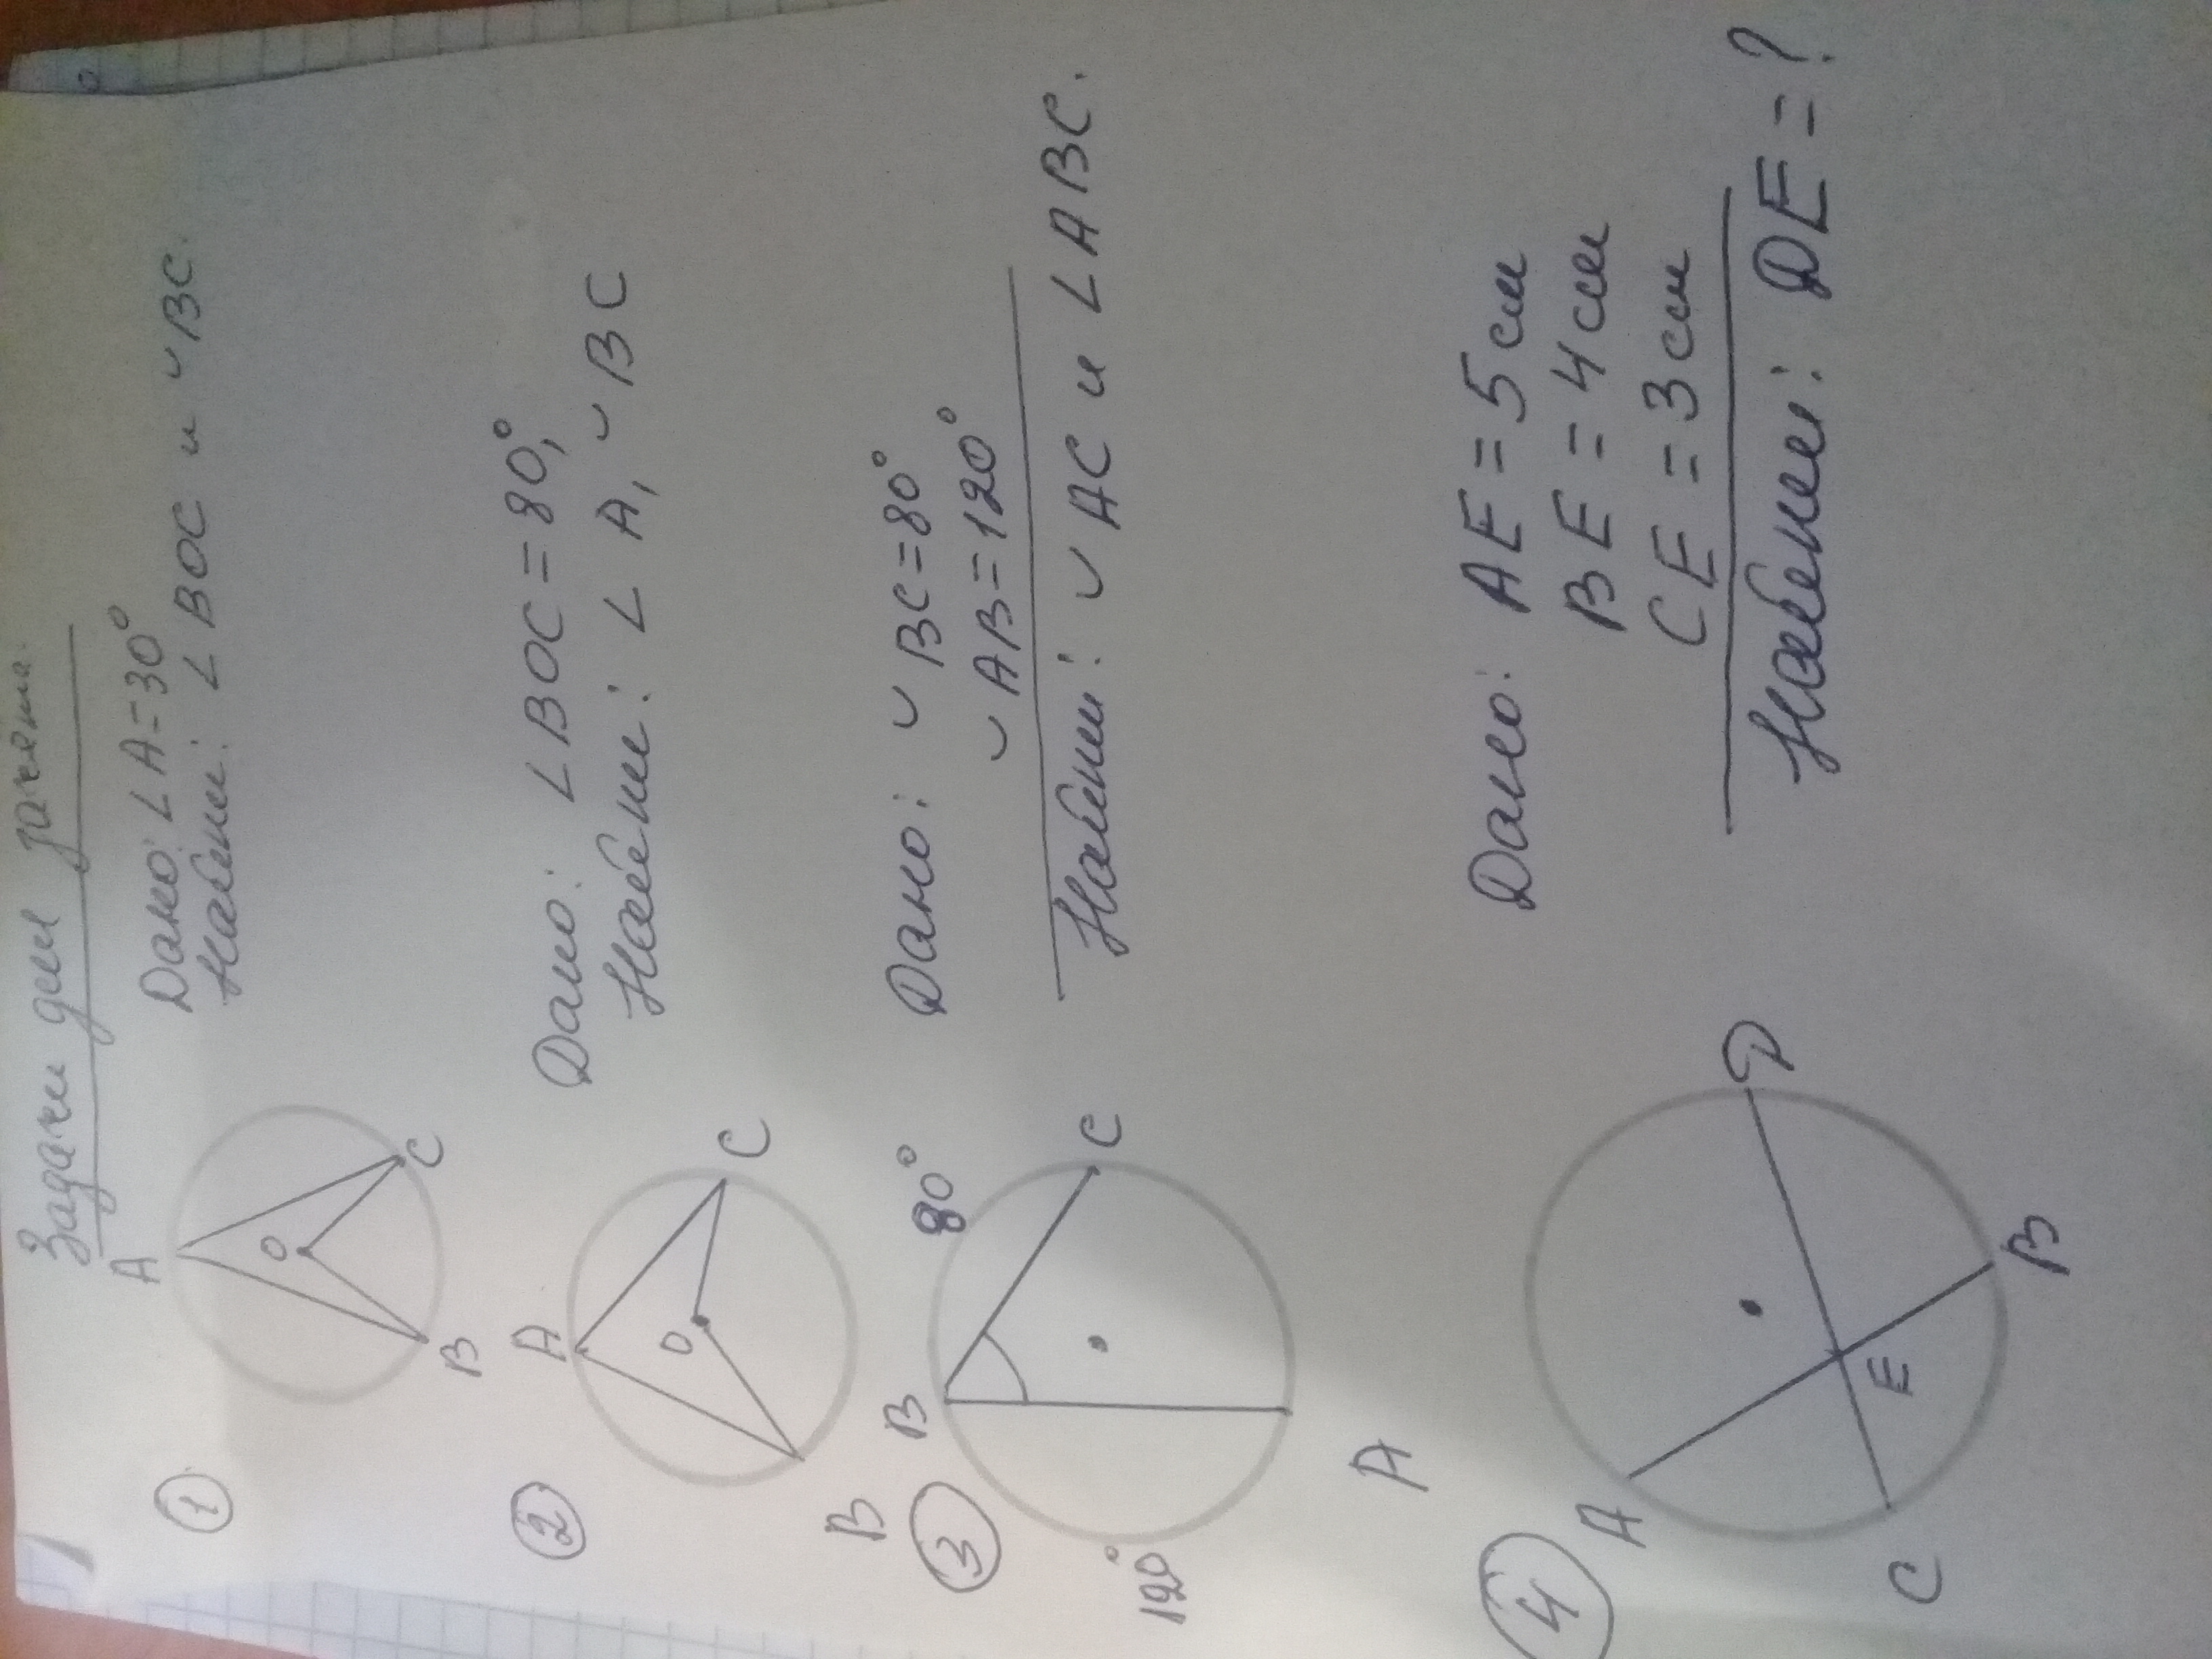 Задачи для зачёта.
1
A
O
B
C
Дано: ∠A=30°
Найти: ∠BOC и ◡BC.
2
A
O
B
C
Дано: ∠BOC=80°,
Найти: ∠A, ◡BC
3
B
80°
C
120°
A
Дано: ◡BC=80°
◡AB=120°
Найти: ◡AC и ∠ABC.
4
A
D
E
C
B
Дано: AE=5см
BE=4см
CE=3см
Найти: DE=?